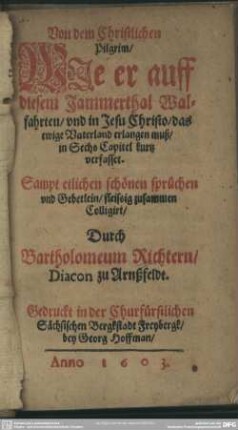 Von dem Christlichen
Pilgrim/
WJe er auff
diesem Jammerthal Wal-
fahrten/ vnd in Jesu Christo/ das
ewige Vaterland erlangen muß/
in Sechs Capitel kurtz
verfasset.
Sampt etlichen schönen sprüchen
vnd Gebetlein/ fleissig zusammen
Colligirt/
Durch
Bartholomeum Richtern/
Diacon zu Arnßfeldt.
Gedruckt in der Churfürstlichen
Sächsischen Bergkstadt Freybergk/
bey Georg Hoffman/
Anno 1603.